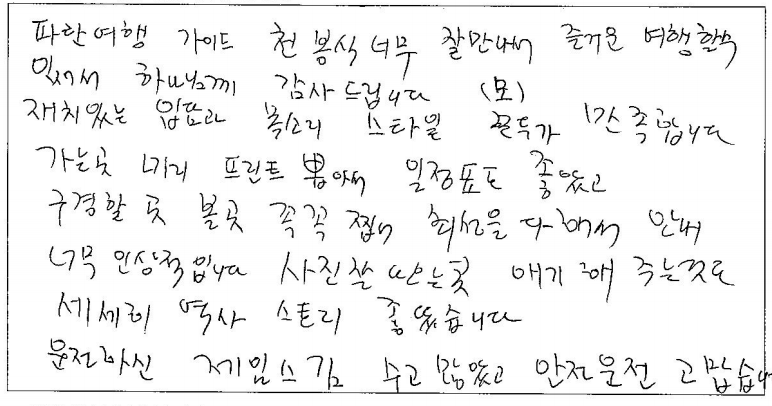 파란여행 가이드 천봉식 너무 잘만나서 즐거운 여행할수
있어서 하나님께 감사드립니다 (모)
재치있는 입담과 목소리 스타일 모두가 만족합니다
가는곳 미리 프린트 뽑아서 일정표도 좋았고
구경할 곳 볼곳 꼭꼭 찝어 최선을 다해서 안내
너무 인상적입니다 사진찰 나오는곳 얘기 해 주는것도
세세히 역사 스토리 좋았습니다
운전하신 제임스 김 수고 많았고 안전운전 고맙습니